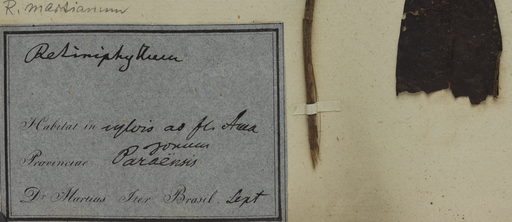 R. martianum
Retiniphyllum
Habitat in sylvis ad fl. Ama
zonum
Provinciae Paraënsis
Dr. Martius Iter Brasil. Sept